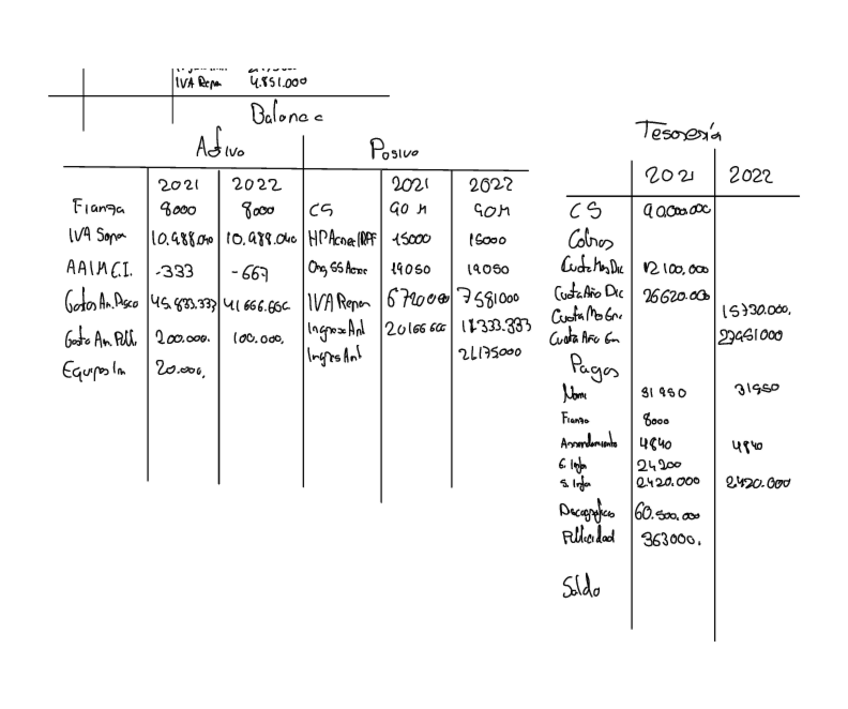 IVA Reper 4.851.000
Balance
Activo Pasivo
2021 2022 2021 2022
Fianza 8000 8000 CS 90 M 90M
IVA Sopor 10.988.040 10.988.040 HP Acree IRPF 15000 15000
AAIM C.I. -333 -667 Org SS Acree 19050 19050
Gastos An. Disco 45.833.333 41.666.666 IVA Reper 6720000 7581000
Gasto An. Publi. 200.000. 100.000. Ingreso Ant 20166666 18333.333
Equipos In 20.000. Ingres Ant 21175000
Tesorería
2021 2022
CS 90.000.000
Cobros
Cuota Mes Dic 12 100.000
Cuota Año Dic 26620.000
Cuota Mo Enr 15730.000.
Cuota Año En
Pagos
Nomi 31 950 31950
Fianza 8000
Arrendamiento 4840 4840
E. Infor 24200
S. Infor 2420.000 2420.000
Discográfico 60.500.000
Publicidad 363000.
Saldo